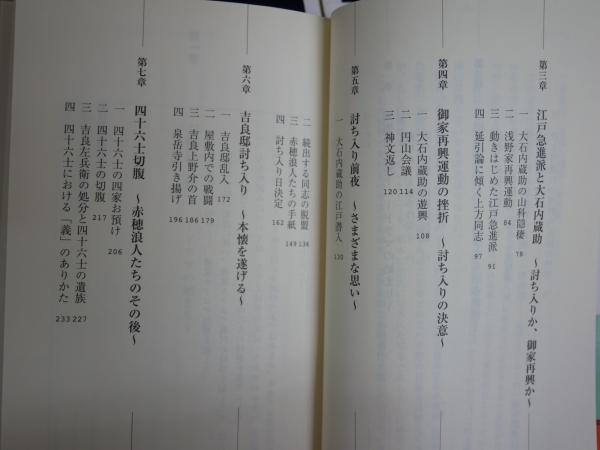 第三章 江戸急進派と大石内蔵助 ～討ち入りか、御家再興か～
一 大石内蔵助の山科隠棲 78
二 浅野家再興運動 84
三 動きはじめた江戸急進派 91
四 延引論に傾く上方同志 97
第四章 御家再興運動の挫折 ～討ち入りの決意～
一 大石内蔵助の遊興 108
二 円山会議 114
三 神文返し 120
第五章 討ち入り前夜 ～さまざまな思い～
一 大石内蔵助の江戸潜入 130
二 続出する同志の脱盟 136
三 赤穂浪人たちの手紙 149
四 討ち入り日決定 162
第六章 吉良邸討ち入り ～本懐を遂げる～
一 吉良邸乱入 172
二 屋敷内での戦闘 179
三 吉良上野介の首 186
四 泉岳寺引き揚げ 196
第七章 四十六士切腹 ～赤穂浪人たちのその後～
一 四十六士の四家お預け 206
二 四十六士の切腹 217
三 吉良左兵衛の処分と四十六士の遺族 227
四 四十六士における「義」のありかた 233